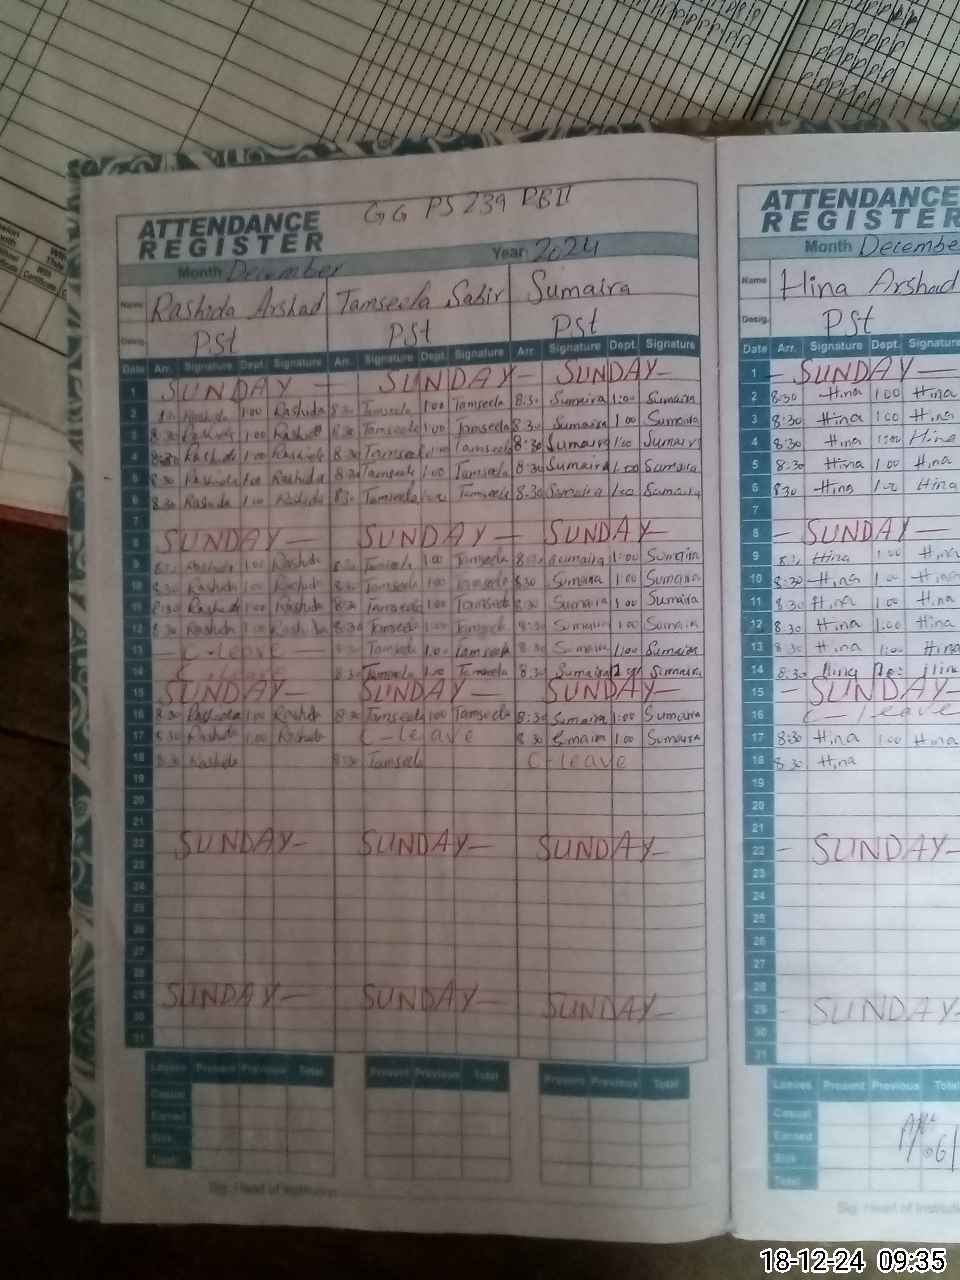 GG PS 239 RB II
ATTENDANCE
REGISTER
Month December Year 2024
Name Rashida Arshad Tamseela Sabir Sumaira
Desig. Pst Pst Pst
Date Arr. Signature Dept. Signature Arr. Signature Dept. Signature Arr. Signature Dept. Signature
1 SUNDAY — SUNDAY — SUNDAY —
2 Rashida 1:00 Rashida 8:30 Tamseela 1:00 Tamseela 8:30 Sumaira 1:00 Sumaira
3 8:30 1:00 8:30 Tamseela 1:00 Tamseela 8:30 Sumaira 1:00 Sumaira
4 8:30 Rashida 1:00 Rashida 8:30 Tamseela 1:00 Tamseela 8:30 Sumaira 1:00 Sumaira
5 8:30 Rashida 1:00 Rashida 8:30 Tamseela 1:00 Tamseela 8:30 Sumaira 1:00 Sumaira
6 8:30 Rashida 1:00 Rashida 8:30 Tamseela 1:00 Tamseela 8:30 Sumaira 1:00 Sumaira
7
8 SUNDAY — SUNDAY — SUNDAY —
9 Rashida 1:00 Rashida 8:30 1:00 Tamseela 8:30 Sumaira 1:00 Sumaira
10 8:30 Rashida 1:00 Rashida 8:30 Tamseela 1:00 Tamseela 8:30 Sumaira 1:00 Sumaira
11 8:30 Rashida 1:00 Rashida 8:30 Tamseela 1:00 Tamseela 8:30 Sumaira 1:00 Sumaira
12 8:30 Rashida 1:00 Rashida 8:30 Tamseela 1:00 Tamseela 8:30 Sumaira 1:00 Sumaira
13 — C-leave 8:30 Tamseela 1:00 Tamseela 8:30 Sumaira 1:00 Sumaira
14 C-leave 8:30 Tamseela 1:00 Tamseela 8:30 Sumaira Sumaira
15 SUNDAY — SUNDAY — SUNDAY —
16 8:30 Rashida 1:00 Rashida 8:30 Tamseela 1:00 Tamseela 8:30 Sumaira 1:00 Sumaira
17 8:30 Rashida 1:00 Rashida C-leave 8:30 Smaira 1:00 Sumaira
18 8:30 Rashida 8:30 Tamseela C-leave
19
20
21
22 SUNDAY — SUNDAY — SUNDAY —
23
24
25
26
27
28
29 SUNDAY — SUNDAY — SUNDAY —
30
31
Leaves Present Previous Total Present Previous Total Present Previous Total
Casual
Earned
Sick
Total
Sig. Head of Institution
ATTENDANCE
REGISTER
Month Decembe
Name Hina Arshad
Desig. PSt
Date Arr. Signature Dept. Signature
1 — SUNDAY —
2 8:30 Hina 1:00 Hina
3 8:30 Hina 1:00 Hina
4 8:30 Hina 1:00 Hina
5 8:30 Hina 1:00 Hina
6 8:30 Hina 1:00 Hina
7
8 — SUNDAY —
9 8:30 Hina 1:00 Hina
10 8:30 Hina 1:00 Hina
11 8:30 Hina 1:00 Hina
12 8:30 Hina 1:00 Hina
13 8:30 Hina 1:00 Hina
14 8:30 Hina Hina
15 — SUNDAY
16 C-leave
17 8:30 Hina 1:00 Hina
18 8:30 Hina
19
20
21
22 — SUNDAY —
23
24
25
26
27
28
29 — SUNDAY —
30
31
Leaves Present Previous Total
Casual
Earned
Sick
Total
Sig. Head of Instituti
18-12-24 09:35